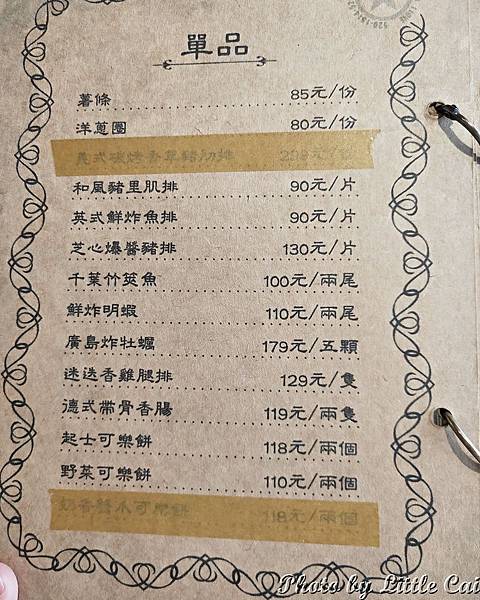 單品
薯條 85元/份
洋蔥圈 80元/份
美式碳烤香草豬肋排
和風豬里肌排 90元/片
英式鮮炸魚排 90元/片
芝心爆醬豬排 130元/片
千葉竹筴魚 100元/兩尾
鮮炸明蝦 110元/兩尾
廣島炸牡蠣 179元/五顆
迷迭香雞腿排 129元/隻
德式帶骨香腸 119元/兩隻
起士可樂餅 118元/兩個
野菜可樂餅 110元/兩個
奶香醬木可樂餅 118元/兩個
Photo by Little Cai